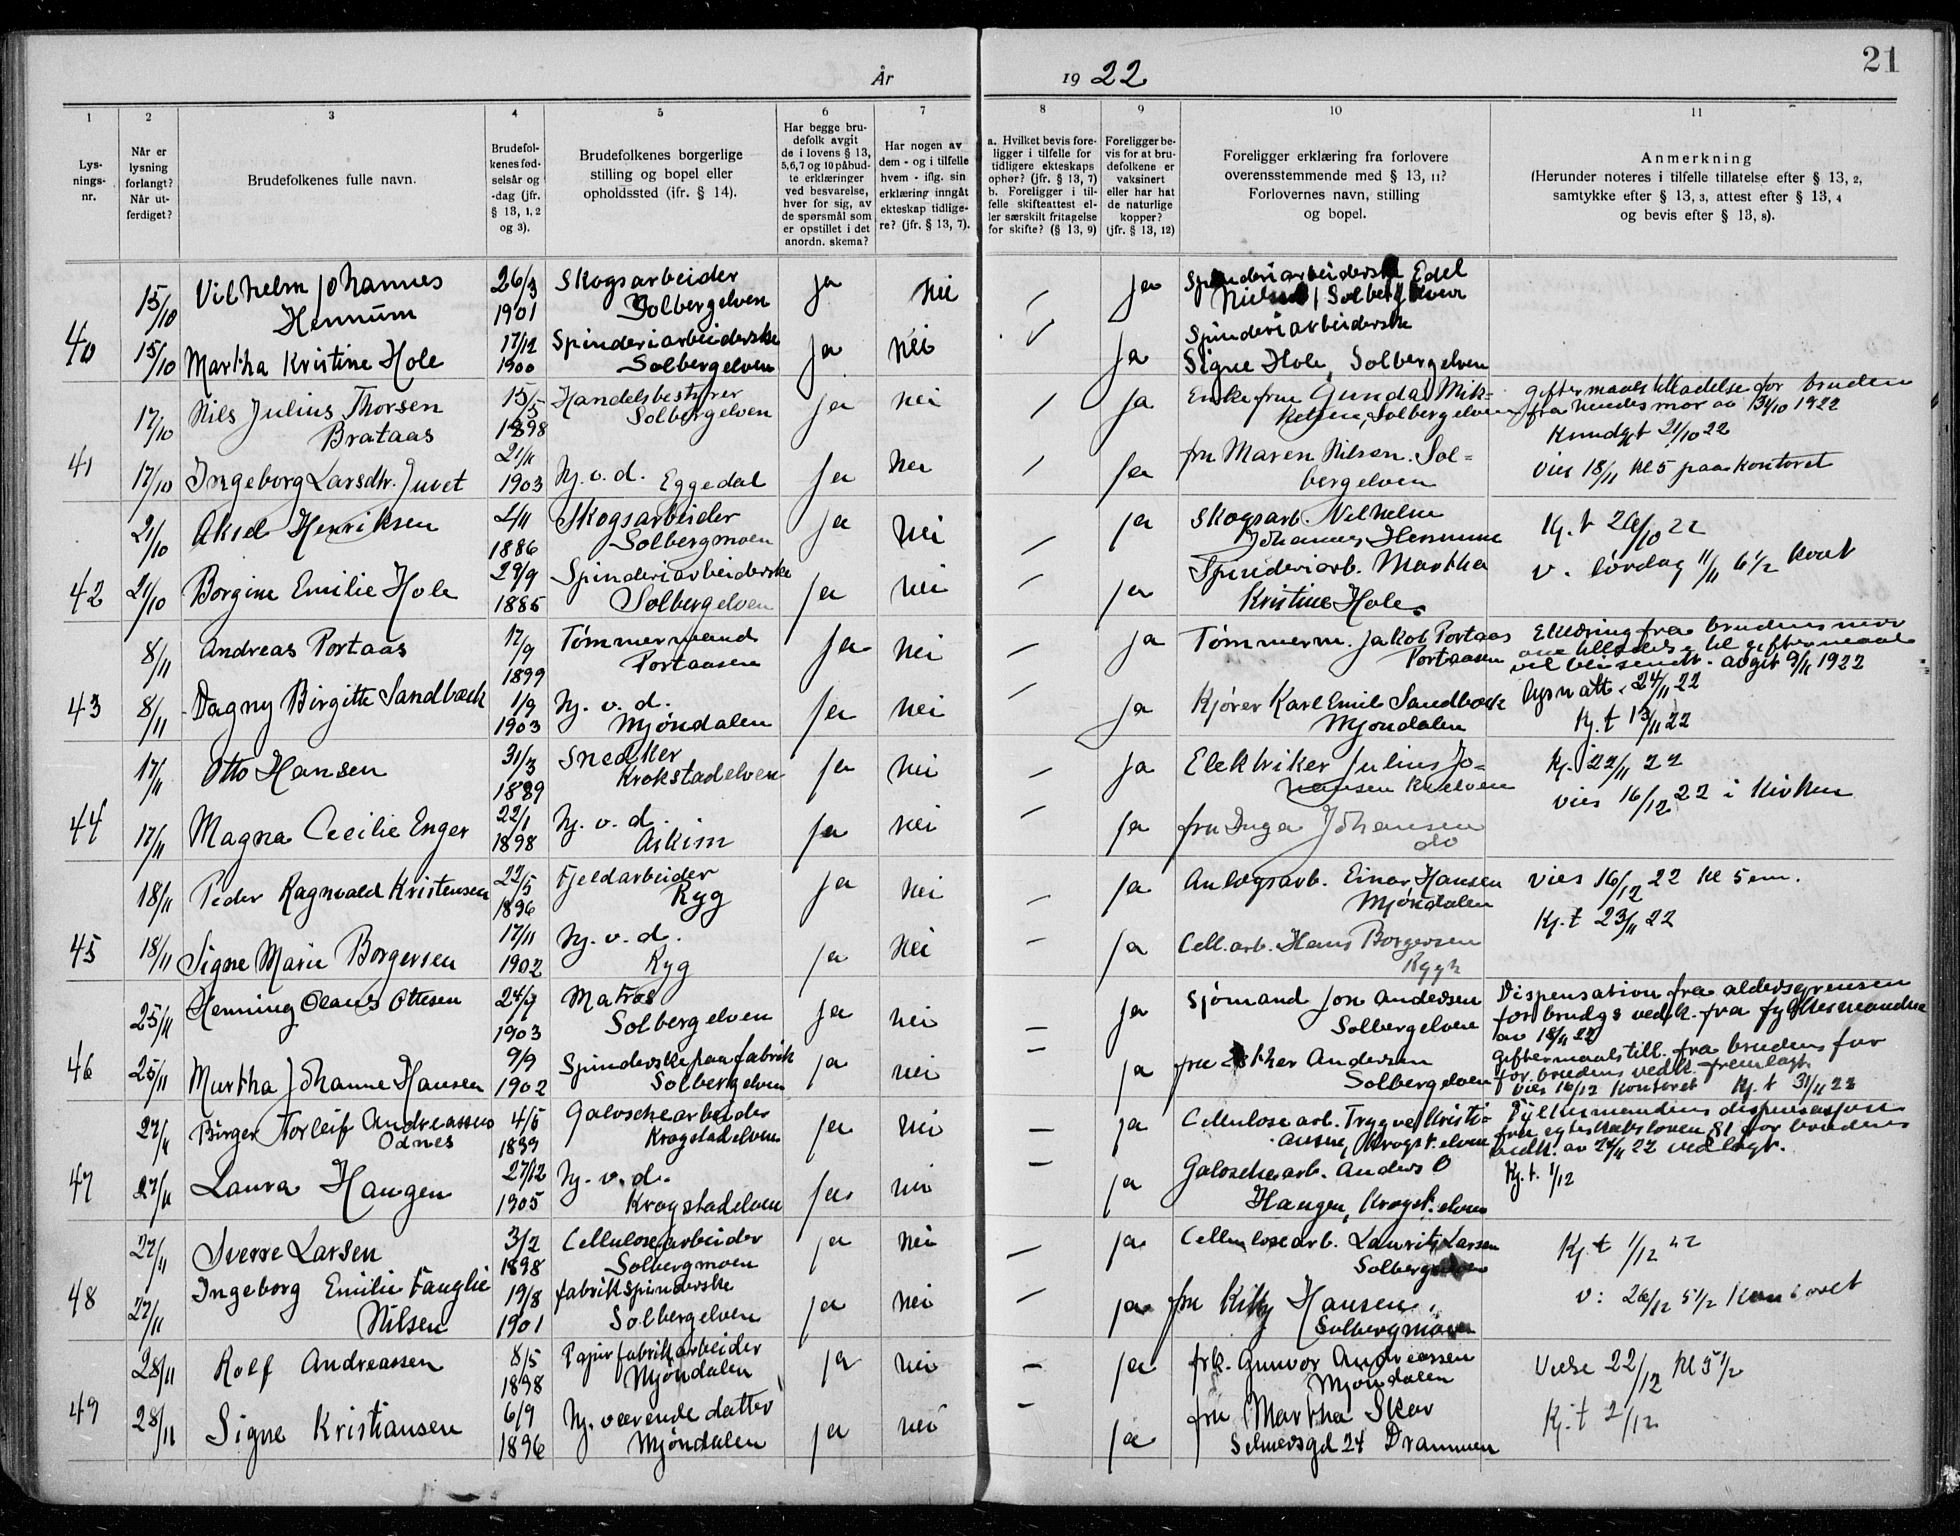 21
År 1922
1 2 3 4 5 6 7 8 9 10 11
Lys-
nings-
nr.
Når er
lysning
forlangt?
Når ut-
ferdiget?
Brudefolkenes fulle navn.
Brudefol-
kenes fød-
selsår og
-dag (jfr.
§ 13, 1, 2
og 3).
Brudefolkenes borgerlige
stilling og bopel eller
opholdssted (jfr. § 14).
Har begge bru-
defolk avgit
de i lovens § 13,
5,6,7 og 10 påbud-
te erklæringer
ved besvarelse,
hver for sig, av
de spørsmål som
er opstillet i det
anordn. skema?
Har nogen av
dem - og i tilfelle
hvem - iflg. sin
erklæring inngått
ekteskap tidlige-
re? (jfr. § 13, 7).
a. Hvilket bevis fore-
ligger i tilfelle for
tidligere ekteskaps
ophør? (jfr. § 13, 7)
b. Foreligger i til-
felle skifteattest el-
ler særskilt fritagelse
for skifte? (§ 13, 9)
Foreligger be-
vis for at bru-
defolkene er
vaksinert
eller har hat
de naturlige
kopper?
(jfr. § 13, 12)
Foreligger erklæring fra forlovere
overensstemmende med § 13, 11?
Forlovernes navn, stilling
og bopel.
Anmerkning
(Herunder noteres i tilfelle tillatelse efter § 13, 2,
samtykke efter § 13, 3, attest efter § 13, 4
og bevis efter § 13, 8).
40
15/10 Vilhelm Johannes Hennum 26/3 1901 Skogsarbeider Solbergelven ja nei — ja Spinderiarbeiderske Edel Solbergelven
15/10 Martha Kristine Hole 17/12 1900 Spinderiarbeiderske Solbergelven ja nei ja Spinderiarbeiderske Signe Hole, Solbergelven
41
17/10 Nils Julius Thorsen Brataas 15/5 1898 Handelsbestyrer Solbergelven ja nei — ja Enkefru Gunda Mik-kelsen, Solbergelven giftermaalstilladelse for bruden fra hendes mor av 13/10 1922
Kundgjt 21/10 22
17/10 Ingeborg Larsdtr. Juvet 21/11 1903 hj. v. d. Eggedal ja nei — ja fru Maren Nilsen. Sol=bergelven vies 18/11 kl 5 paa kontoret
42
21/10 Aksel Henriksen 2/11 1886 Skogsarbeider Solbergmoen ja nei — ja Skogsarb. Vilhelm Johannes Hennum Kj. t 26/10 22
21/10 Borgine Emilie Hole 29/9 1885 Spinderiarbeiderske Solbergelven ja nei — ja Spinderiarb. Martha Kristine Hole. v. lørdag 11/11 6 1/2
43
8/11 Andreas Portaas 17/9 1899 Tømmermand Portaasen ja nei — ja Tømmerm. Jakob Portaas Portaasen Erklæring fra brudens mor om tilladelse til giftermaal vil bli sendt. avgit 9/11 1922
8/11 Dagny Birgitte Sandbæck 1/9 1903 hj. v. d. Mjøndalen ja nei — ja Kjører Karl Emil Sandbæck Mjøndalen lysn att. 24/11 22
Kj. t 13/11 22
44
17/11 Otto Hansen 31/3 1889 Snedker Krokstadelven ja nei — ja Elektriker Julius Jo-hansen Kr. elven Kj. 22/11 22
17/11 Magna Cecilie Enger 22/1 1898 hj. v. d. Askim ja nei — ja fru Inga Johansen do vies 16/12 22 i kirken
45
18/11 Peder Ragnvald Kristensen 22/5 1896 Fjeldarbeider Ryg ja nei — ja Anlægsarb. Einar Hansen Mjøndalen vies 16/12 22 kl 5 em.
18/11 Signe Marie Borgersen 17/11 1902 hj. v. d. Ryg ja nei — ja Cell. arb. Hans Borgersen Rygh Kj. t 23/11 22
46
25/11 Henning Olaus Ottesen 24/7 1903 Matros Solbergelven ja nei — ja Sjømand Jon Andersen Solbergelven Dispensation fra aldersgrensen for brudgs vedk. fra fylkesmanden av 18/11 22
25/11 Martha Johanne Hansen 9/9 1902 Spinderske paa fabrik Solbergelven ja nei — ja fru Esther Andersen Solbergelven giftermaalstill. fra brudens far for brudens vedk. fremlagt.
vies 16/12 kontoret Kj. t
47
27/11 Birger Torleif Andreassen Odnes 4/5 1899 Galoschearbeider Krogstadelven ja nei — ja Cellulosearb. Trygve Kristi-ansen, Krogst. elven Fylkesmandens dispensasjon fra egteskabsloven §1 for brudens vedk. av 24/11 22 vedlagt.
27/11 Laura Haugen 27/12 1905 hj. v. d. Krogstadelven ja nei — ja Galoschearb. Anders O Haugen, Krogst. elven Kj. t. 1/12
48
27/11 Sverre Larsen 3/2 1898 Cellulosearbeider Solbergmoen ja nei — ja Cellulosearb. Laurits Larsen Kj. t 1/12 22
27/11 Ingeborg Emilie Fauglie Nilsen 19/8 1901 fabrikspinderske Solbergelven ja nei — ja fru Kitty Hansen, Solbergmoen v: 26/12 5 1/2 kontoret
49
28/11 Rolf Andreassen 8/5 1898 Papirfabrikarbeider Mjøndalen ja nei — ja frk. Gunvor Andreassen Mjøndalen Vielse 22/12 kl 5 1/2
28/11 Signe Kristiansen 6/9 1896 hj. værende datter Mjøndalen ja nei — ja fru Martha Skar Selmersgd 24 Drammen Kj. t 2/12